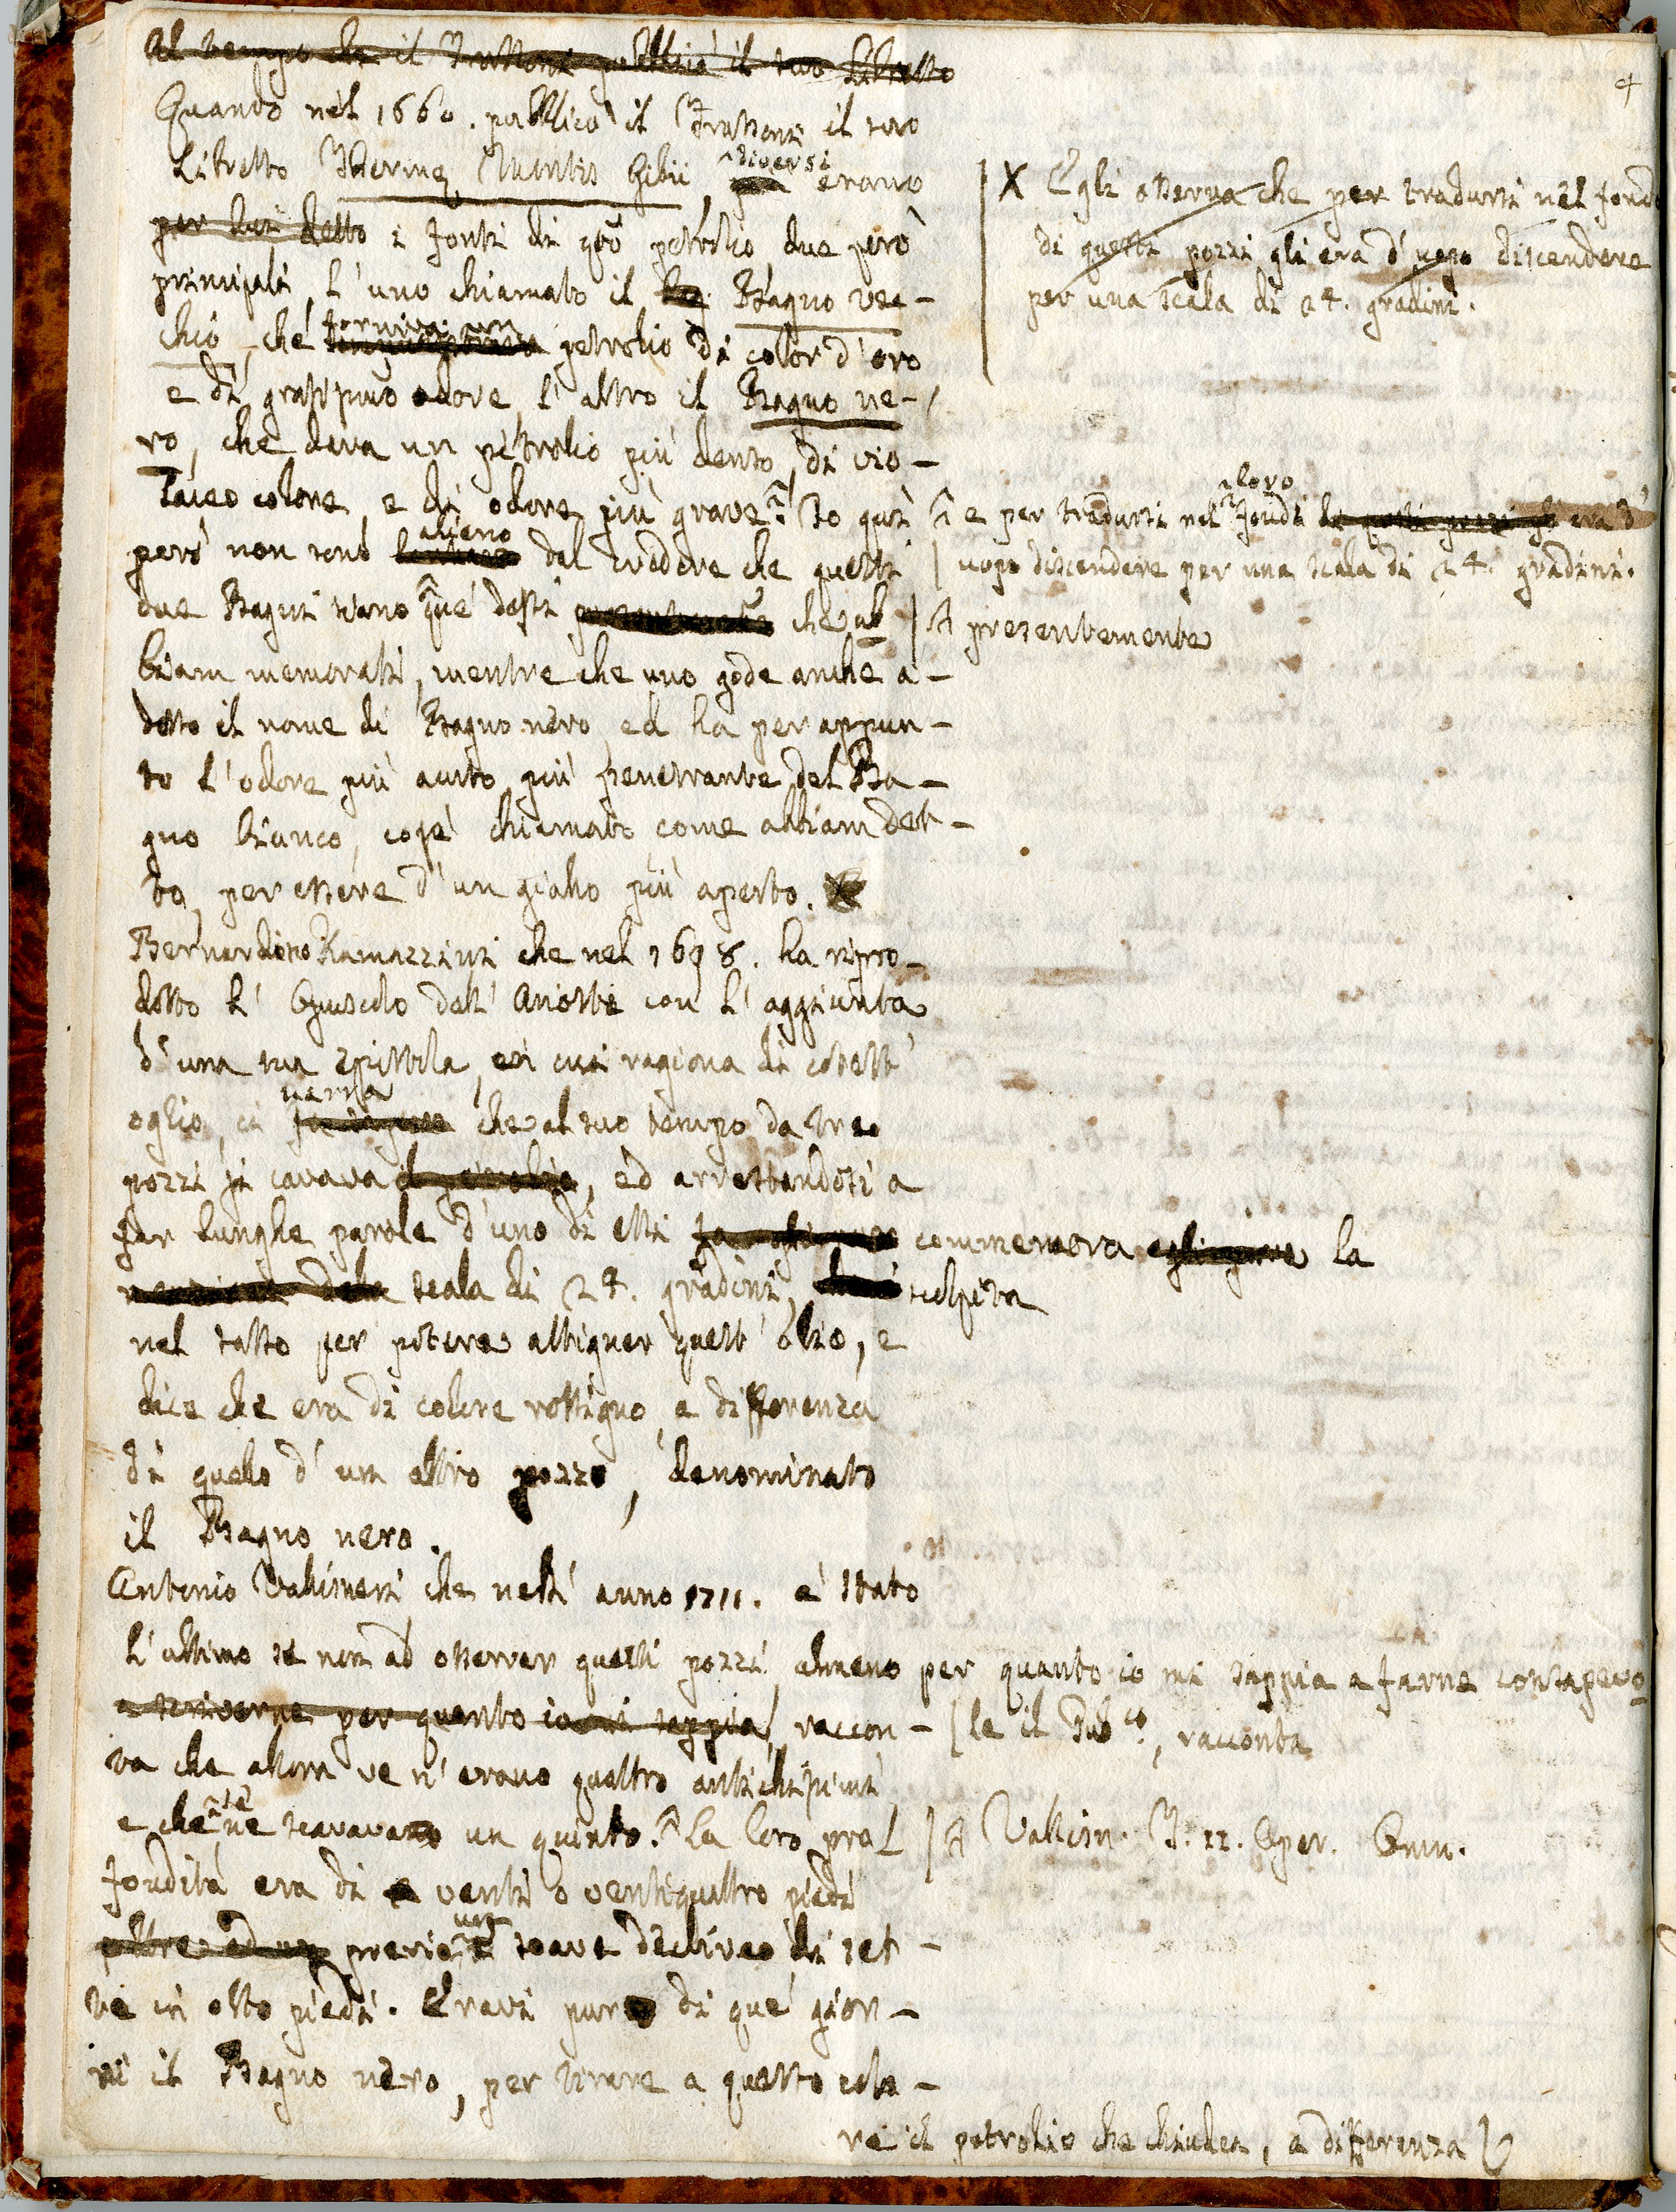 Al tempo che il Frassoni pubblicò il suo Libretto
4
Quando nel 1660. pubblicò il Frassoni il suo
Libretto Thermę Montis Gibii, diversi erano
per lui detto i fonti di qto petrolio due però
principali, l'uno chiamato il Bagno vec-
chio, che forniva un petrolio di color d'oro
e di gratissimo odore, l'altro il Bagno ne-
ro, che dava un petrolio più denso, di vio-
laceo colore, e di odore più grave. Io quì
però non sono alieno dal credere che questi
due Bagni siano que' dessi che ab
biam memorati, mentre che uno gode anche a-
desso il nome di Bagno nero, ed ha perappun-
to l'odore più acuto più penetrante del Ba-
gno bianco, così chiamato, come abbiam det-
to, per essere d'un giallo più aperto.
X Egli osserva che per tradursi nel fondo
di questi pozzi gli era d'uopo discendere
per una scala di 24. gradini.
e per tradursi nel loro fondi era d'
uopo discendere per una scala di 24. gradini.
presentemente
Bernardino Ramazzini che nel 1698. ha ripro-
dotto l'Opuscolo dell'Ariosto con l'aggiunta
d'una sua epistola, in cui ragiona di cotest'
oglio, ci narra che al suo tempo da tre
pozzi si cavava il petrolio, ed arrestandosi a
far lunghe parole d'uno di essi commemora la
scala di 24. gradini, scolpita
nel sasso per potere attigner quest'olio, e
dice che era di colore rossigno, a differenza
di quello d'un altro pozzo, denominato
il Bagno nero.
Antonio Vallisneri che nell'anno 1711. è stato
l'ultimo se non ad osservar questi pozzi, almeno per quanto io mi sappia a farne consapevo
a scriverne per quanto io mi sappia, raccon-
le il Pubco, racconta
ta che allora ve n'erano quattro antichissimi
e che se ne scavava un quinto. La loro pro
Vallisn. T. II. Oper. Omn.
fondità era di venti o ventiquattro piedi
oltre ad un previo un soave declivio di set-
te in otto piedi. Eravi pure di que' gior-
ni il Bagno nero, per tirare a questo colo-
re il petrolio che chiudea, a differenza